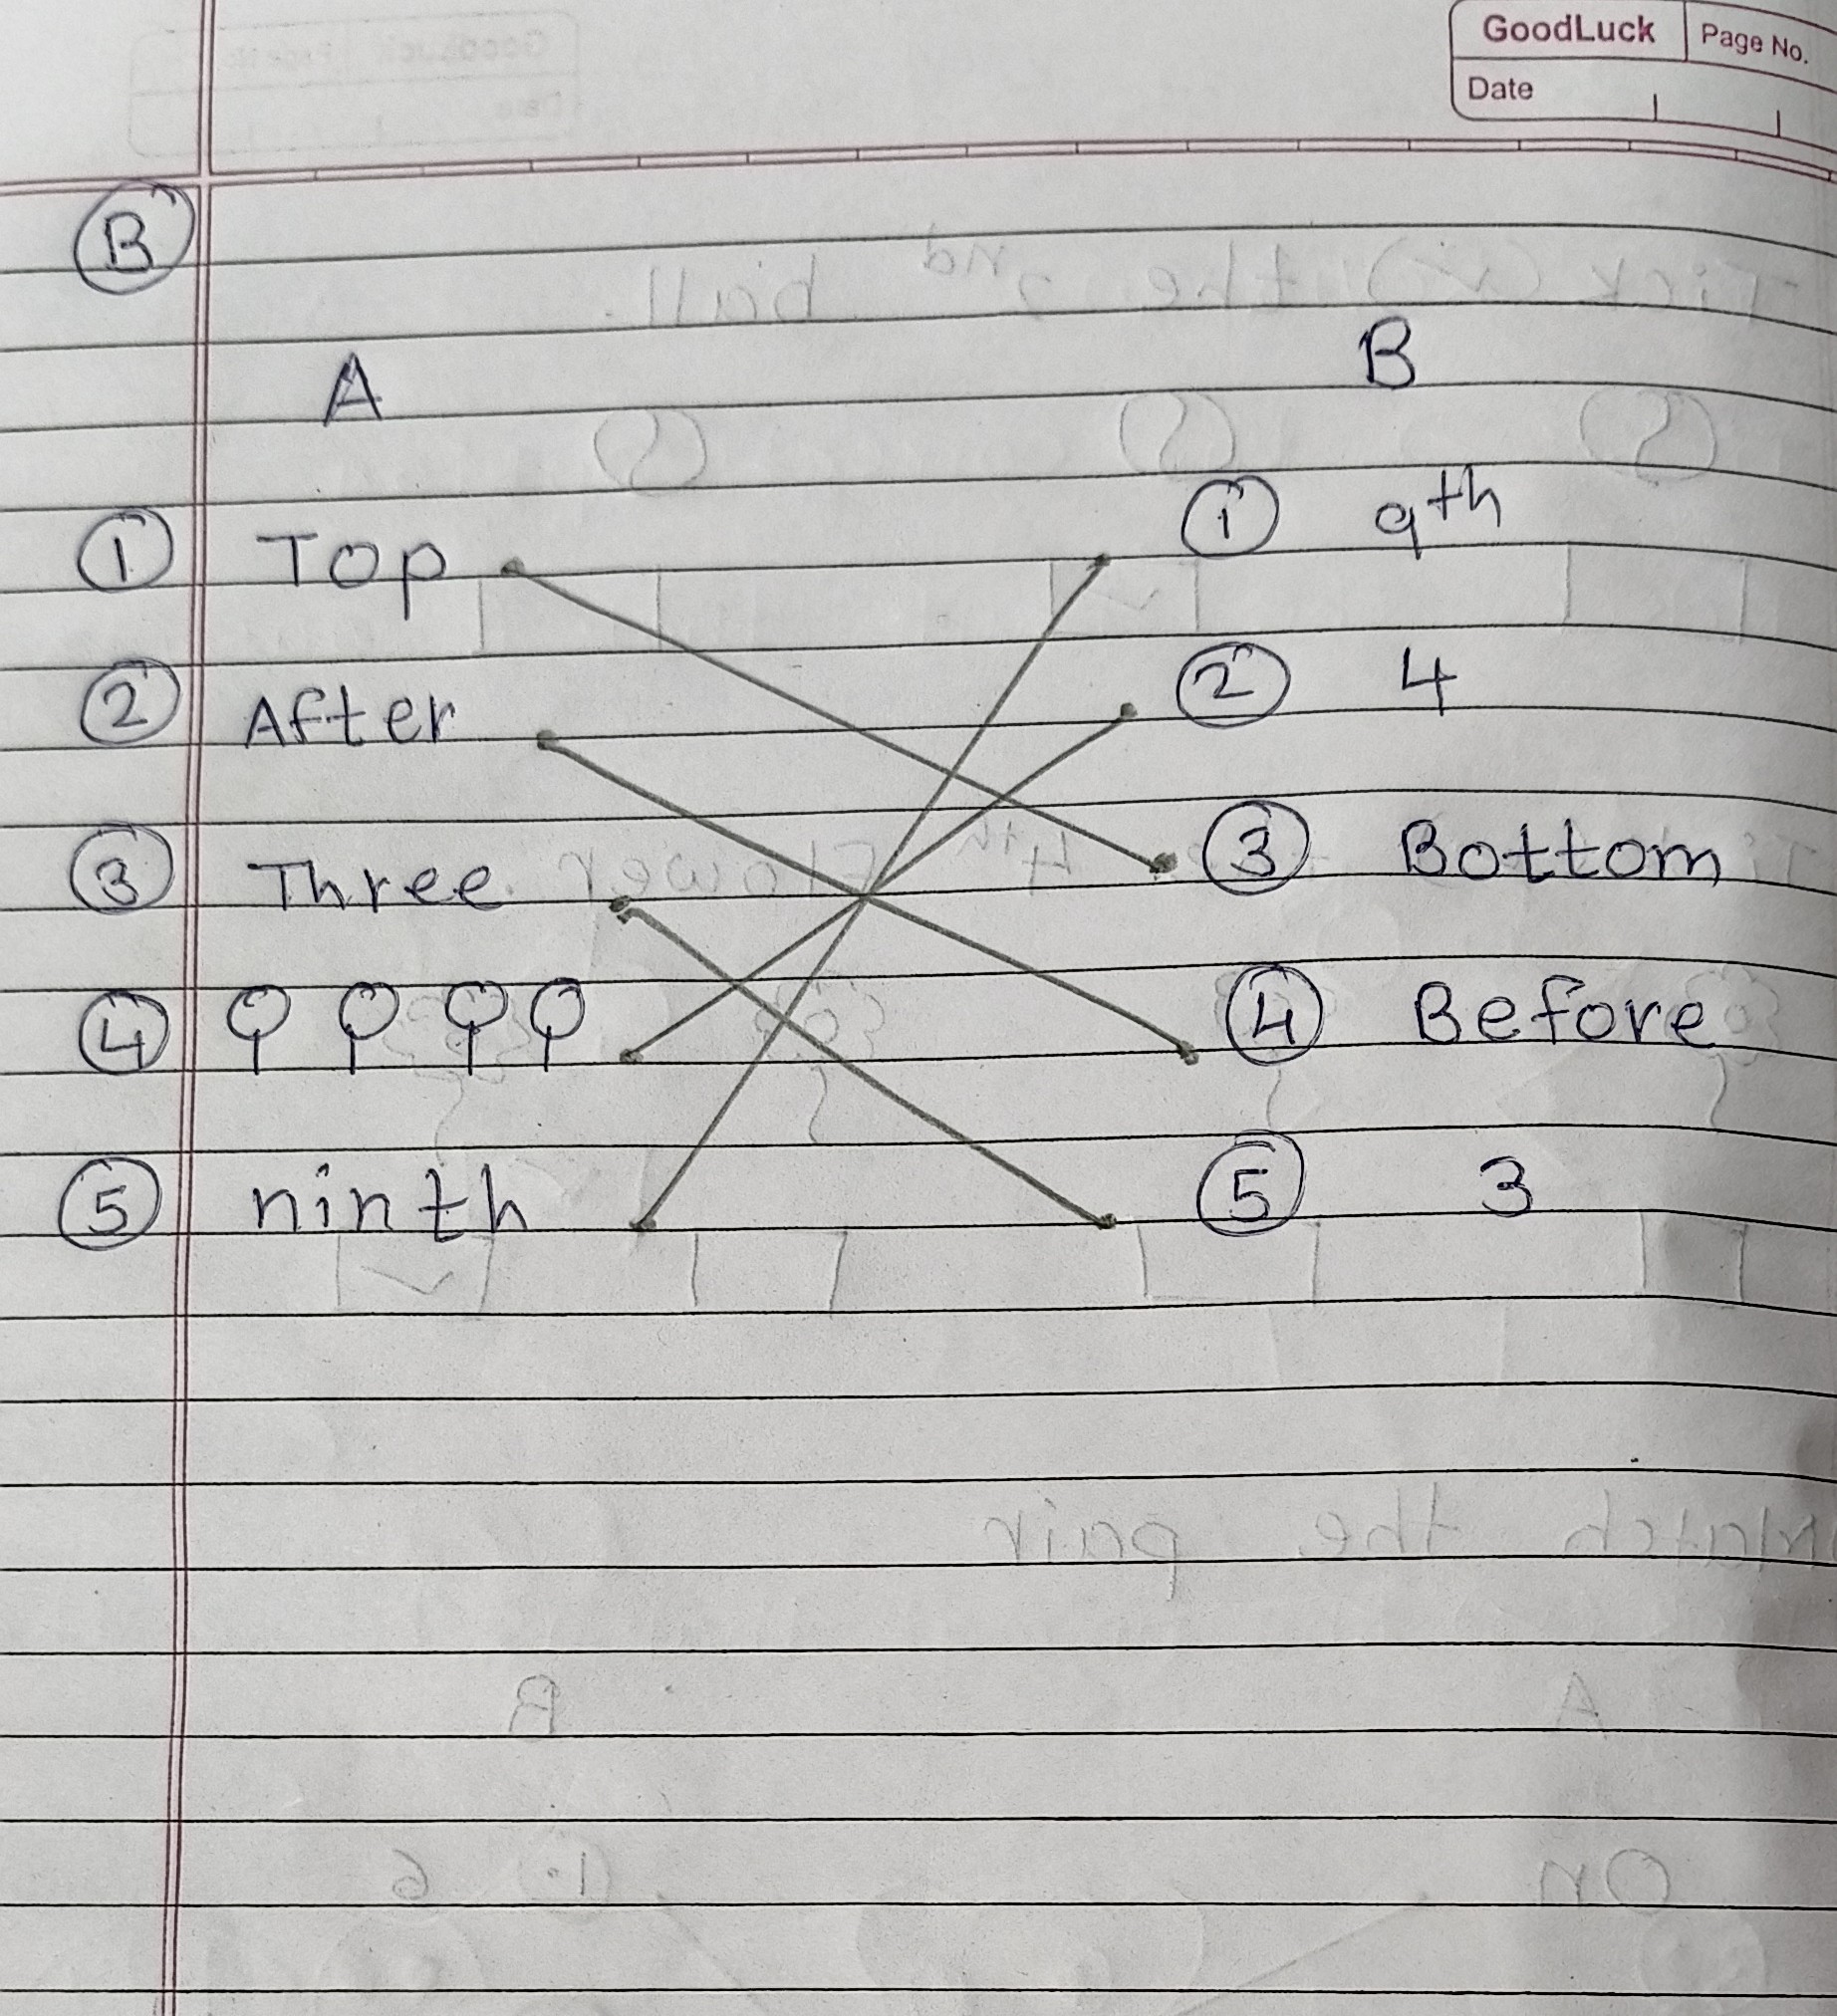 GoodLuck Page No.
Date
B
A B
1 Top 1 9th
2 After 2 4
3 Three 3 Bottom
4 4 Before
5 ninth 5 3